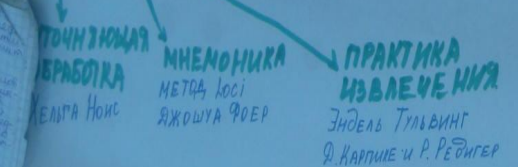 ТОЧНЯЮЩАЯ
БРАБОТКА
ХЕЛЬГА НОИС
МНЕМОНИКА
МЕТОД Loci
ДЖОШУА ФОЕР
ПРАКТИКА
ИЗВЛЕЧЕНИЯ
ЭНДЕЛЬ ТУЛЬВИНГ
Д. КАРПИКЕ И Р. РЕДИГЕР